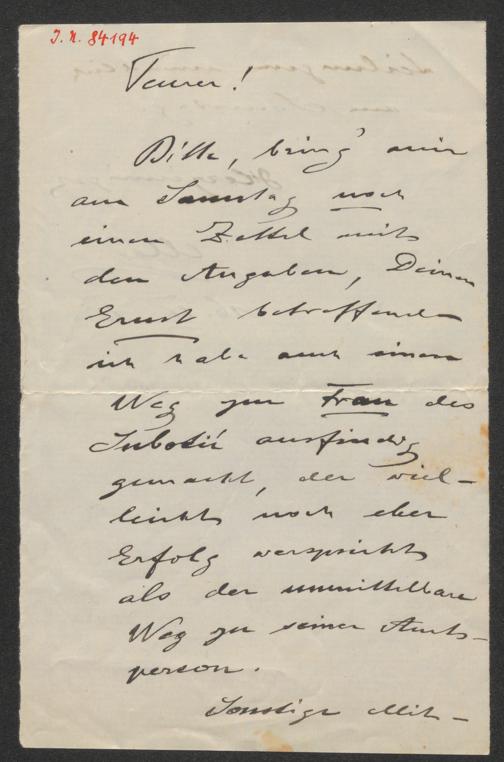 J. N. 84194
Teurer!
Bitte, bring' mir
am Sonntag noch
einen Zettel mit
den Angaben, Deinen
Ernst betreffend
ich habe auch einen
Weg zur Frau des
Subotić ausfindig
gemacht, der viel-
leicht noch eher
Erfolg verspricht
als der unmittelbare
Weg zu seiner Amts-
person.
Sonstige Mit-